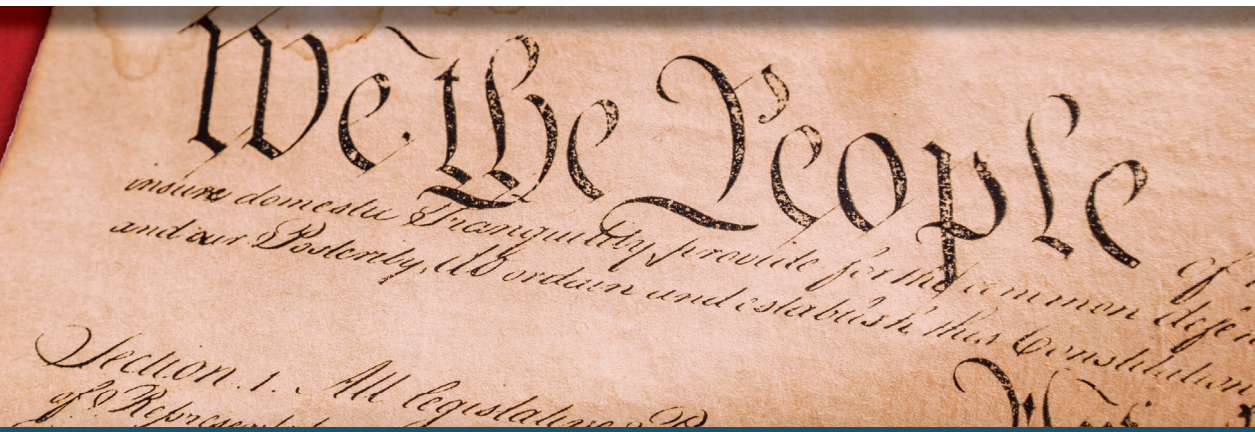 We the People of
insure domestic Tranquility, provide for the common defen
and our Posterity, do ordain and establish this Constitution
Section. 1. All legislative P
of Represent